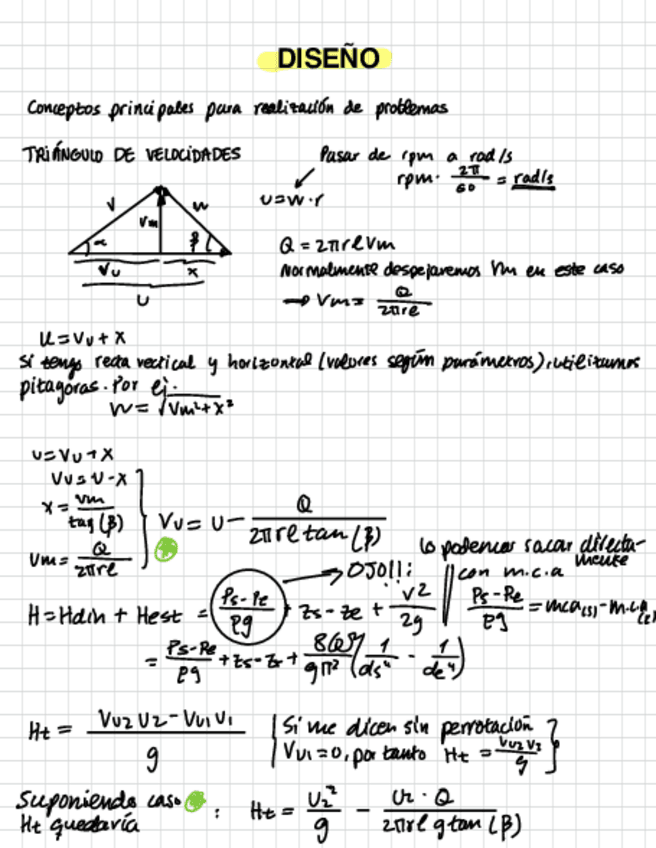 DISEÑO
Conceptos principales para realización de problemas
TRIÁNGULO DE VELOCIDADES
Pasar de rpm a rad/s
rpm · 2π/60 = rad/s
u = w · r
V
Vm
w
α
β
Vu
x
U
Q = 2πrlVm
Normalmente despejaremos Vm en este caso
→ Vm = Q/2πrl
U = Vu + x
Si tengo recta vertical y horizontal (valores según parámetros), utilizamos
pitagoras. Por ej.
W = √Vm² + x²
U = Vu + x
Vu = U - x
x = Vm/tag(β)
Vm = Q/2πrl
Vu = U - Q/2πrl tan(β)
lo podemos sacar directamente
con m.c.a
OJO!!:
H = Hdin + Hest = Ps-Pe/ρg + zs-ze + v2/2g
Ps-Pe/ρg = mca(s) - m.c.a(e)
= Ps-Pe/ρg + zs-ze + 8Q²/gπ² (1/ds⁴ - 1/de⁴)
Ht = Vu2 U2 - Vu1 U1/g
Si me dicen sin perrotación
Vu1 = 0, por tanto Ht = Vu2 U2/g
Suponiendo caso
Ht quedaría : Ht = U2²/g - U2 · Q/2πrl g tan(β)